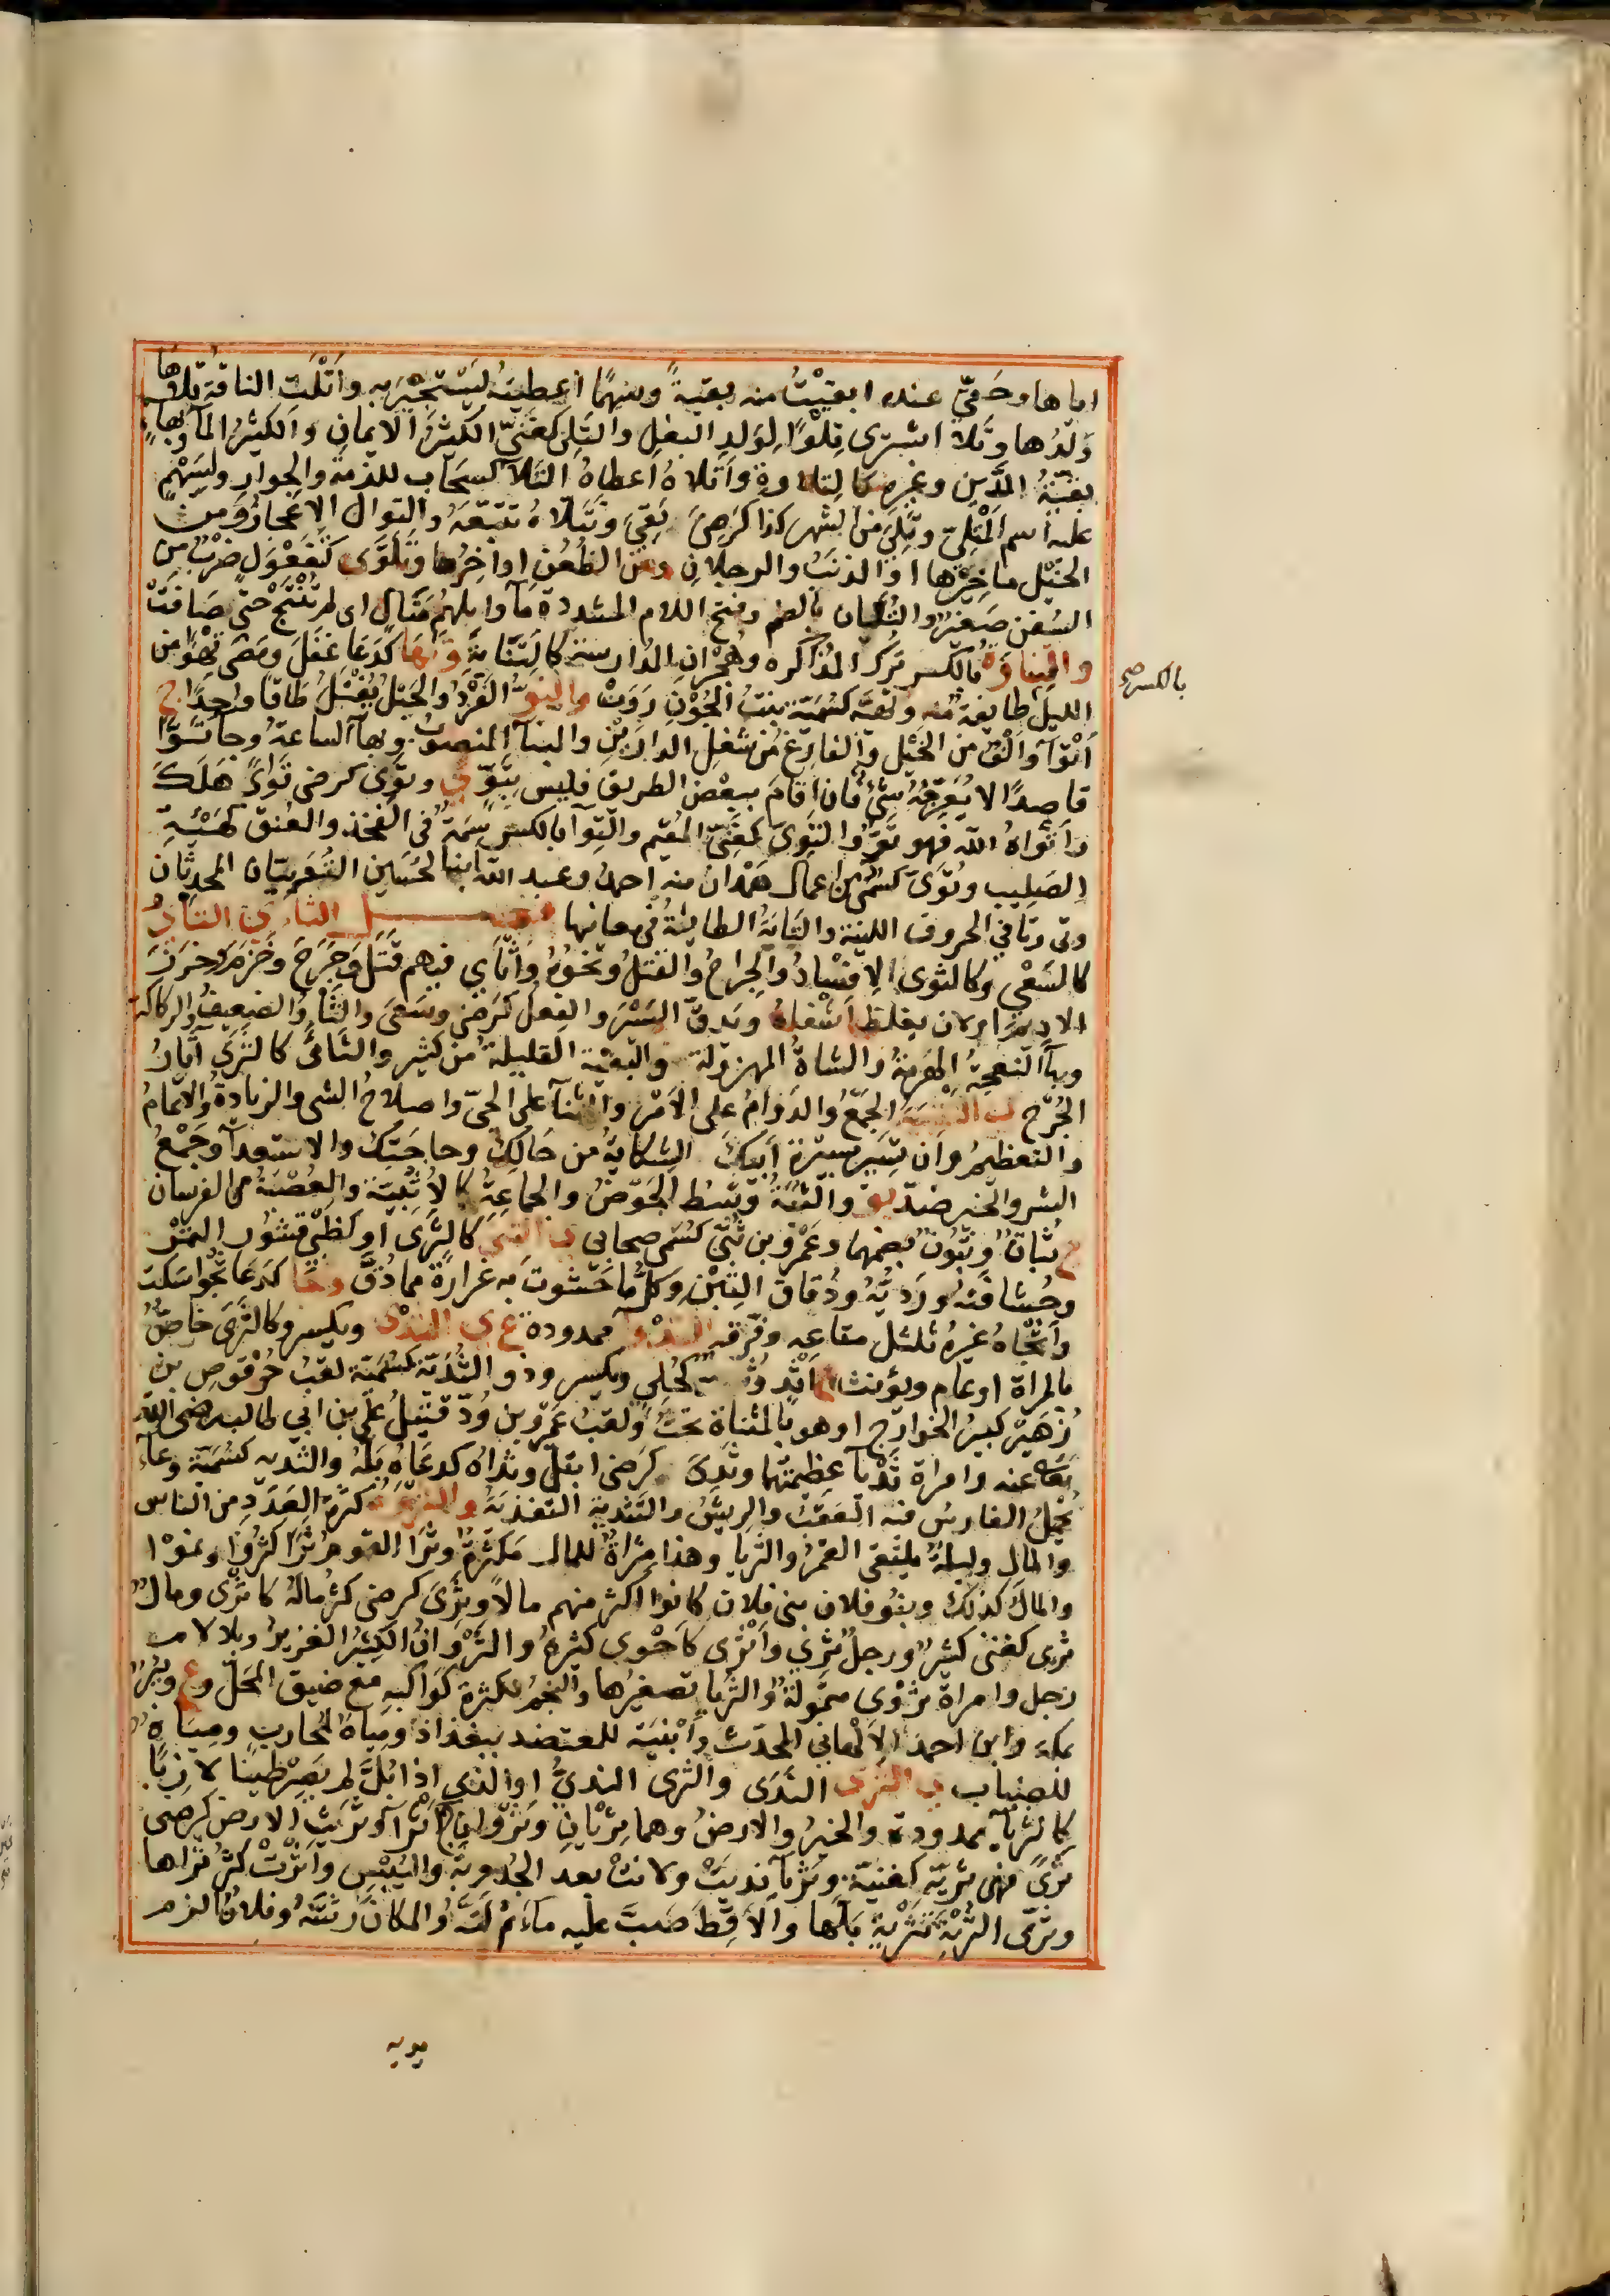 اياها وحَقّي عنده ابقيْتُ منه بقيةً وسهمًا اعطيته ليَسْتجيْرَ به واَتْلَتِ الناقة تلاها
وَلَدُها وتلا اشترى تِلْوًا لِوَلَدِ البغلِ والتَلِىّ كغَنِىّ الكثيرُ الايمانِ والكثيرُ المال وبهاءٍ
بقيّةُ الدَّينِ وغيرِه كالتلاوةِ واَتلاهُ اعطاهُ التَلاءَ كسَحَاب للذمة والجوار ولسَهْمٍ
عليه اسم المُتْلِىّ وتَلِيَ من الشهر كذا كرَضِيَ بَقِيَ وتَتَلّاهُ تتبّعَه والتوالى الاعجازُ ومن
الخيْل مآخِيْرُها او الذنَبُ والرجلانِ ومن الظُعُنِ اواخِرُها وتَلَوَّى كفَعَوْلَ ضرْبٌ من
السُفُن صَغيْرٌ والتُلَّيان بالضم وفتح اللام المشددة مآء وابلهُم مَتَالٍ اى لم تُنْتَجْ حتى صَافَتْ
والتِناوَةُ بالكسر ترك المُذاكره وهُجْرانِ المُدارسة كالتِّنايةُ وتَهَا كدَعَا غفَلَ ومَضَى تَهْوَاءٌ من
بالكسر صح
الليل طايفة منه وتُهَيَّه كسُمَيّة بنتُ الجُوْنِ رَوَتْ والتَوُّ الفَرْدُ والحَبْلُ يُفْتَلُ طَاقًا واحِدًا ج
اَتْوَآءٌ وأَلْفٌ من الخَيْل والفارِغُ من شغلِ الدارَيْنِ والبنآ المنصوب وبهآ الساعةُ وجآ تَوًّا
قاصدًا لا يُعَرِّجُهُ شئٌ فان اقامَ ببعْض الطريق فليس بتَوٍّ ي وتوِىَ كرضى تَوًى هَلَكَ
واَتْواهُ الله فهو تَوٍ والتَوِىّ كغَنِىّ المُقيم والتِوآ بالكسر سِمَةٌ فى الفخذ والعُنق كهَيْئةِ
الصَليب وتُوَىّ كسُمَىّ من اعمال هَمْدان منه احمد وعبد الله ابنا الحُسَين التُوَيّيَّان المحدِّثان
وتى وتا في الحروف اللينة والتَايَةُ الطايةُ في معانيها فصـــــــل الثآ ى الثَّأىُ
كالسَعْىِ وكالثرى الاِفسْادُ والجِراحُ والقتلُ ونحوُهُ وأَثْأى فيهم قتَلَ وجَرَحَ وخَزَمَ وخَرَزَ
الاديم او ان يغلظ اَشفاهُ ويَدِقَّ السَيْرَ والفعل كرَضىَ وسَعَى والثَأْوُ الضعيفُ والركاكة
وبهآ النعجةُ الهَرِمةُ والشاةُ المهزولة والبقية القليلة من كثير والثأى كالثرى آثارُ
الجُرْح ى التثنيَةُ الجَمْعُ والدَوَامُ على الاَمْر والثنآ على الحىّ واصلاحُ الشى والزيادةُ والاتمامُ
والتعظيمُ وان تسِيْر بسِيْرةِ اَبيكَ الشكايةُ من حَالِكَ وحاجَتِكَ والاستعدآ وجَمْعُ
الشر والخير ضدّ يو والثُبَةُ وَسَطُ الحَوْضُ والجماعة كالاُثْبيّة والعُصْبةُ من الفرسان
ج ثُبَاتٌ وثُبُونَ بضمهما وعَمْرو بن ثُبَىّ كسُمى صحابى ى الثتَى كالثرَى او كظَبْىٍ قشُوْر التمْر
وحُسَافَته ورَديّه ودُقاق التِبْن وكلُّ ما حَشَوتَ به غرارةً مما دُقَّ وثجَا كدعا ثُجُوًّا سَكت
واَثْجاهُ غيرُه ثلثل متاعه وفرّقه الثدْوآ ممدودة ع ى الثدْى ويكسر وكالثَرى خَاصٌّ
بالمراة او عام ويؤنث ج اَثْدٍ وثُدِىّ كحُلِى ويكسر وذو الثُدَيّة كسُمَيّة لقبُ حُرْقوصِ بن
زُهَيْر كبيرُ الخوارج او هو بالمثناة تحتُ ولقبُ عَمْرو بن وُدّ قتيلُ علىّ بن ابى طالب رضى الله
تعه عنه وامراة ثَدْيآ عظيمتُهما وثَدِىَ كرضى ابتلّ وثدَاهُ كدعَاهُ بَلّهُ والثُديه كسُمَيّة وعآ
يحْمِلُ الفارِسُ فيه العَقَبَ والريشَ والتثديةِ التغذيَةُ والثرْوَة كثرة العَدَدِ من الناس
والمالِ وليلةٌ يلتقى القمرُ والثريا وهذا مثراةٌ للمال مَكثرةٌ وثرَا القوم ثَرَاءً كثرُوا ونمَوْا
والمالُ كذلك وبنُو فلان بنى فلان كانوا اكثر منهم مالًا وثَرِىَ كرضى كثُر مالُه كاثرَى ومالٌ
ثرِى كغنى كثيْرٌ ورجل ثرِىٌ واَثرى كاَحْوى كثيرهُ والثَرْوَانُ الكثيْرُ الغزيرُ وبلا لام
رجل وامراة ثَرْوى متموّلةٌ والثريا تصغيرُها والنجمُ لكثرةِ كَوَاكبهِ مع ضيق المَحَلّ وع وبئرٌ
بمكة وابن احمد الاَلْهانى المحدّث واَبْنيَة للمعتضد ببغداذ ومياهٌ لمُحاربٍ ومِيَاهٌ
للضِباب ى الثرَى الندَى والثرى النديُّ او الذى اذا بُلَّ لم يَصِرْ طيْنا لازبًا
كالثريآ ممدودة والخيرُ والارضُ وهما ثرَيَانِ وثرَوانِ ج اَثرآ وثَرِيَتِ الارض كرضى
ثرًى فهى ثرِيّه كغنيّة وثَرْيآ نديتْ ولانتْ بعد الجُدوبةِ واليُبْسِ واَثْرَتْ كثُر ثراها
وثرّى التُرْبَةَ تثرْيةً بَلّها والاَقِطَ صَبَّ عليه مآءً ثم لَتّهُ والمكانَ رَشّهُ وفلانٌ الزم
يديه